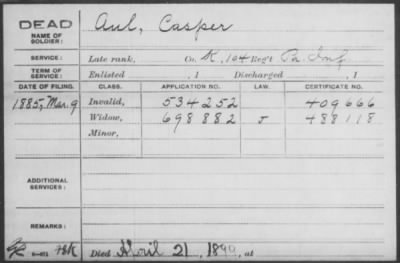 DEAD
NAME OF SOLDIER:
Aul, Casper
SERVICE: Late rank, Co. K, 104 Reg't Pa Inf
TERM OF SERVICE: Enlisted , 1 Discharged , 1
DATE OF FILING. CLASS. APPLICATION NO. LAW. CERTIFICATE NO.
1885, Mar. 9 Invalid, 534252 409666
Widow, 698882 J 488118
Minor,
ADDITIONAL SERVICES:
REMARKS:
Died April 21, 1899, at